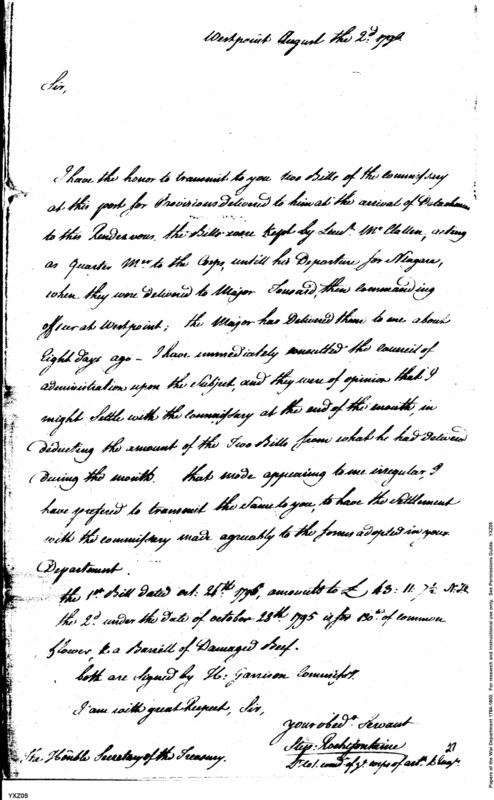 Westpoint August the 2d. 1796
Sir,
I have the honor to transmit to you two Bills of the commissary
at this post for Provisions delivered to him at the arrival of Detachment
to this Rendezvous. the Bills were kept by Lieut. McClallen, acting
as Quarter Mr. to the Corps, untill his Departure for Niagara,
when they were delivered to Major Tousard, then commanding
officer at Westpoint; the Major has Delivered them to me about
Eight days ago – I have immediately consulted the Council of
administration upon the Subject, and they were of opinion that I
might Settle with the commissary at the end of the month, in
deducting the amount of the Two Bills from what he had delivered
during the month. that mode appearing to me irregular, I
have prefered to transmit the same to you, to have the Settlement
with the commissary made agreably to the forms adopted in your
Department.
the 1st. Bill dated oct. 26th 1795, amounts to £ 43: 11: 7½
the 2d. under the date of october 28th 1795 is for of common
flower & a Barrell of Damaged Beef.
both are signed by H: Garrison Commissy.
I am with great Respect, Sir,
your obedt. Servant
Step: Rochefontaine
Lt. Col. comdt. of ye corps of artts. & Engrs.
27
The Honble Secretary of the Treasury.
YXZ05
Papers of the War Department 1784-1800. For research and instructional use only. See Permissions Guide. YXZ05